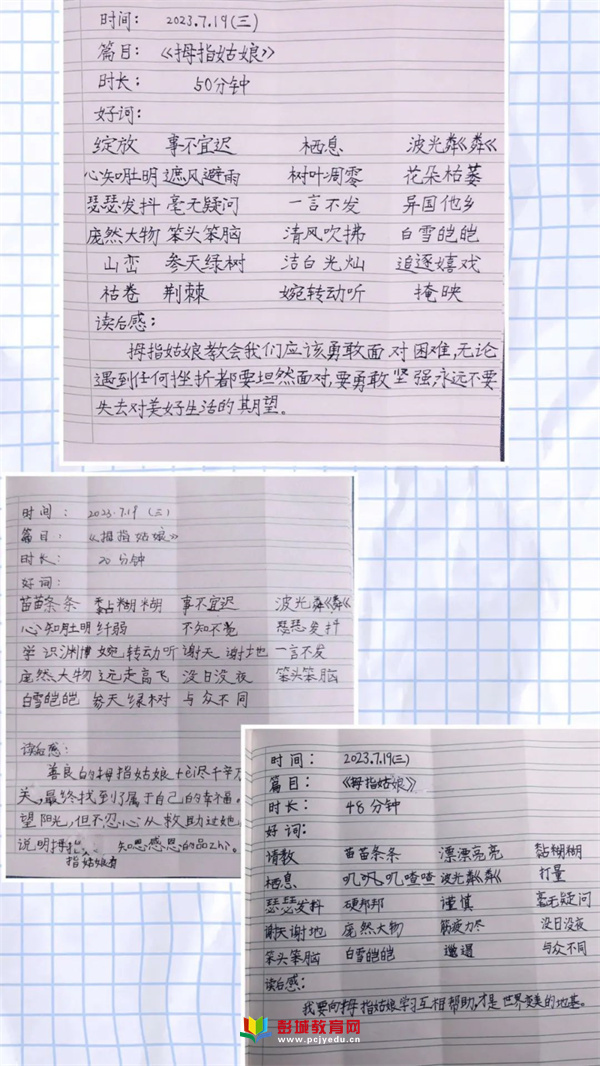 时间: 2023.7.19(三)
篇目:《拇指姑娘》
时长: 50分钟
好词:
绽放 事不宜迟 栖息 波光粼粼
心知肚明 遮风避雨 树叶凋零 花朵枯萎
瑟瑟发抖 毫无疑问 一言不发 异国他乡
庞然大物 笨头笨脑 清风吹拂 白雪皑皑
山峦 参天绿树 洁白光灿 追逐嬉戏
枯卷 荆棘 婉转动听 掩映
读后感:
拇指姑娘教会我们应该勇敢面对困难,无论
遇到任何挫折都要坦然面对,要勇敢坚强,永远不要
失去对美好生活的期望。
时间: 2023.7.19 (三)
篇目:《拇指姑娘》
时长: 20分钟
好词:
苗苗条条 黏糊糊 事不宜迟 波光粼粼
心知肚明 纤弱 不知不觉 瑟瑟发抖
学识渊博 婉转动听 谢天谢地 一言不发
庞然大物 远走高飞 没日没夜 笨头笨脑
白雪皑皑 参天绿树 与众不同
读后感:
善良的拇指姑娘历尽千辛万
关,最终找到了属于自己的幸福。
望阳光,但不忍心从救助过她
说明拇 知恩感恩的品zhì。
指姑娘有
时间: 2023.7.19(三)
篇目:《拇指姑娘》
时长: 48分钟
好词:
请教 苗苗条条 漂漂亮亮 黏糊糊
栖息 叽叽喳喳 波光粼粼 打量
瑟瑟发抖 硬邦邦 谨慎 毫无疑问
谢天谢地 庞然大物 筋疲力尽 没日没夜
笨头笨脑 白雪皑皑 邋遢 与众不同
读后感:
我要向拇指姑娘学习互相帮助,才是世界变美的地基。
彭城教育网
www.pcjyedu.cn